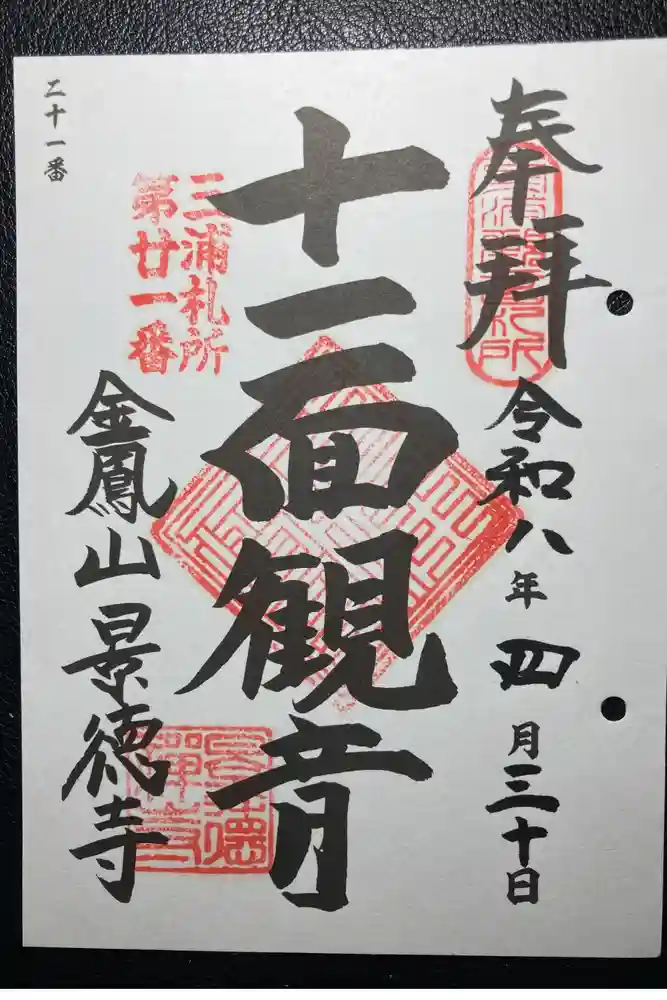 奉拝
令和八年四月三十日
十一面観音
三浦札所
第廿一番
金鳳山景徳寺
二十一番